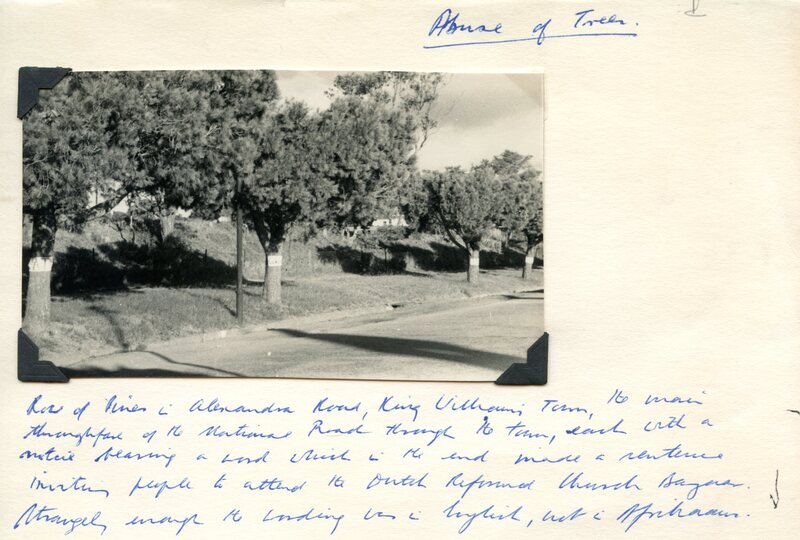 Abuse of Trees.
Row of Pines in Alexandra Road, King William's Town, the main
throughfare of the National Road through the town, each with a
notice bearing a word which in the end made a sentence
inviting people to attend the Dutch Reformed Church Bazaar.
Strangely enough the wording was in English, not in Afrikaans.